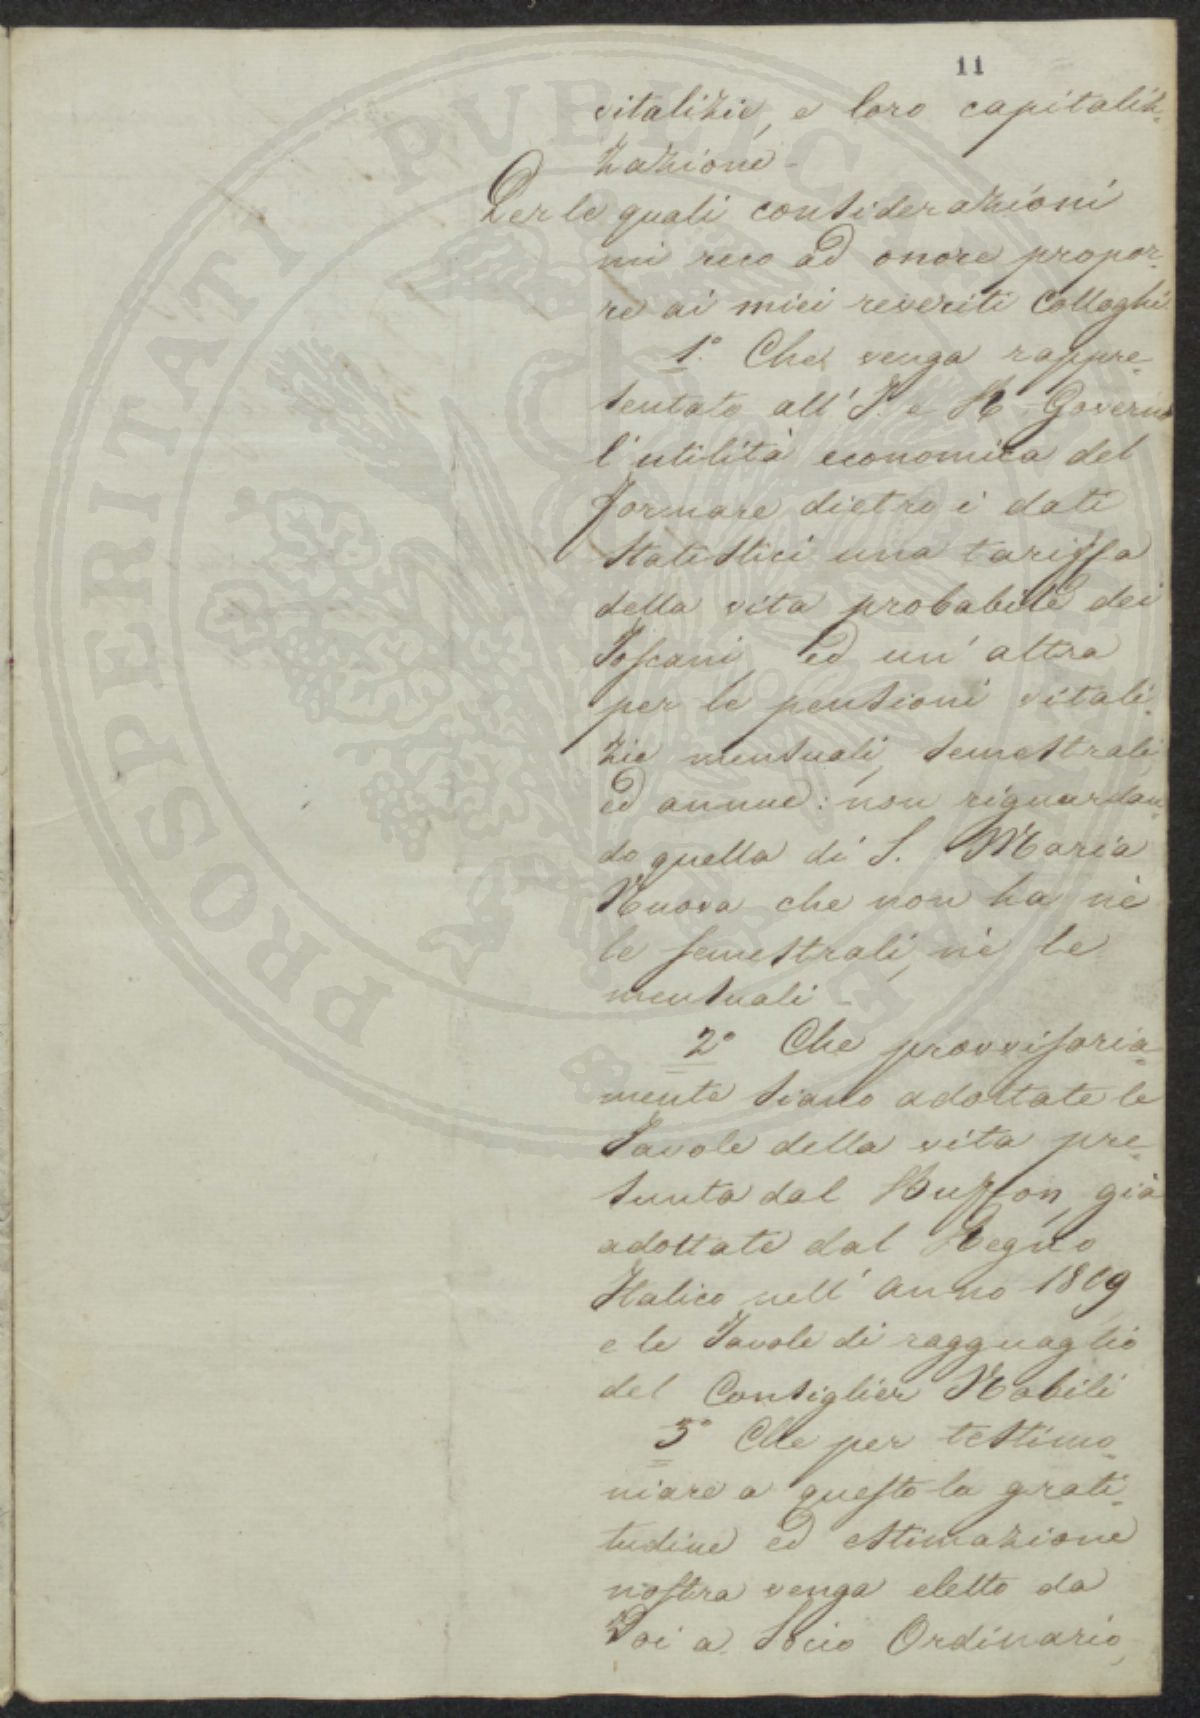 11
vitalizie, e loro capitaliz-
zazione -
Per le quali considerazioni
mi reco ad onore propor-
re ai miei reveriti Colleghi.
1.° Che venga rappre-
sentato all' I. e R. Governo
l'utilità economica del
formare dietro i dati
statistici una tariffa
della vita probabile dei
Toscani, ed un' altra
per le pensioni vitali-
zie mensuali, semestrali
ed annue: non riguardan-
do quella di S. Maria
Nuova che non ha nè
le semestrali, nè le
mensuali -
2° Che provvisoria-
mente siano adottate le
Tavole della vita pre-
sunta dal Buffon, già
adottate dal Regno
Italico nell' anno 1809
e le Tavole di ragguaglio
del Consiglier Nobili
3° Che per testimo-
niare a questo la grati-
tudine ed estimazione
nostra venga eletto da
Voi a Socio Ordinario,
PROSPERITATI PVBLICAE